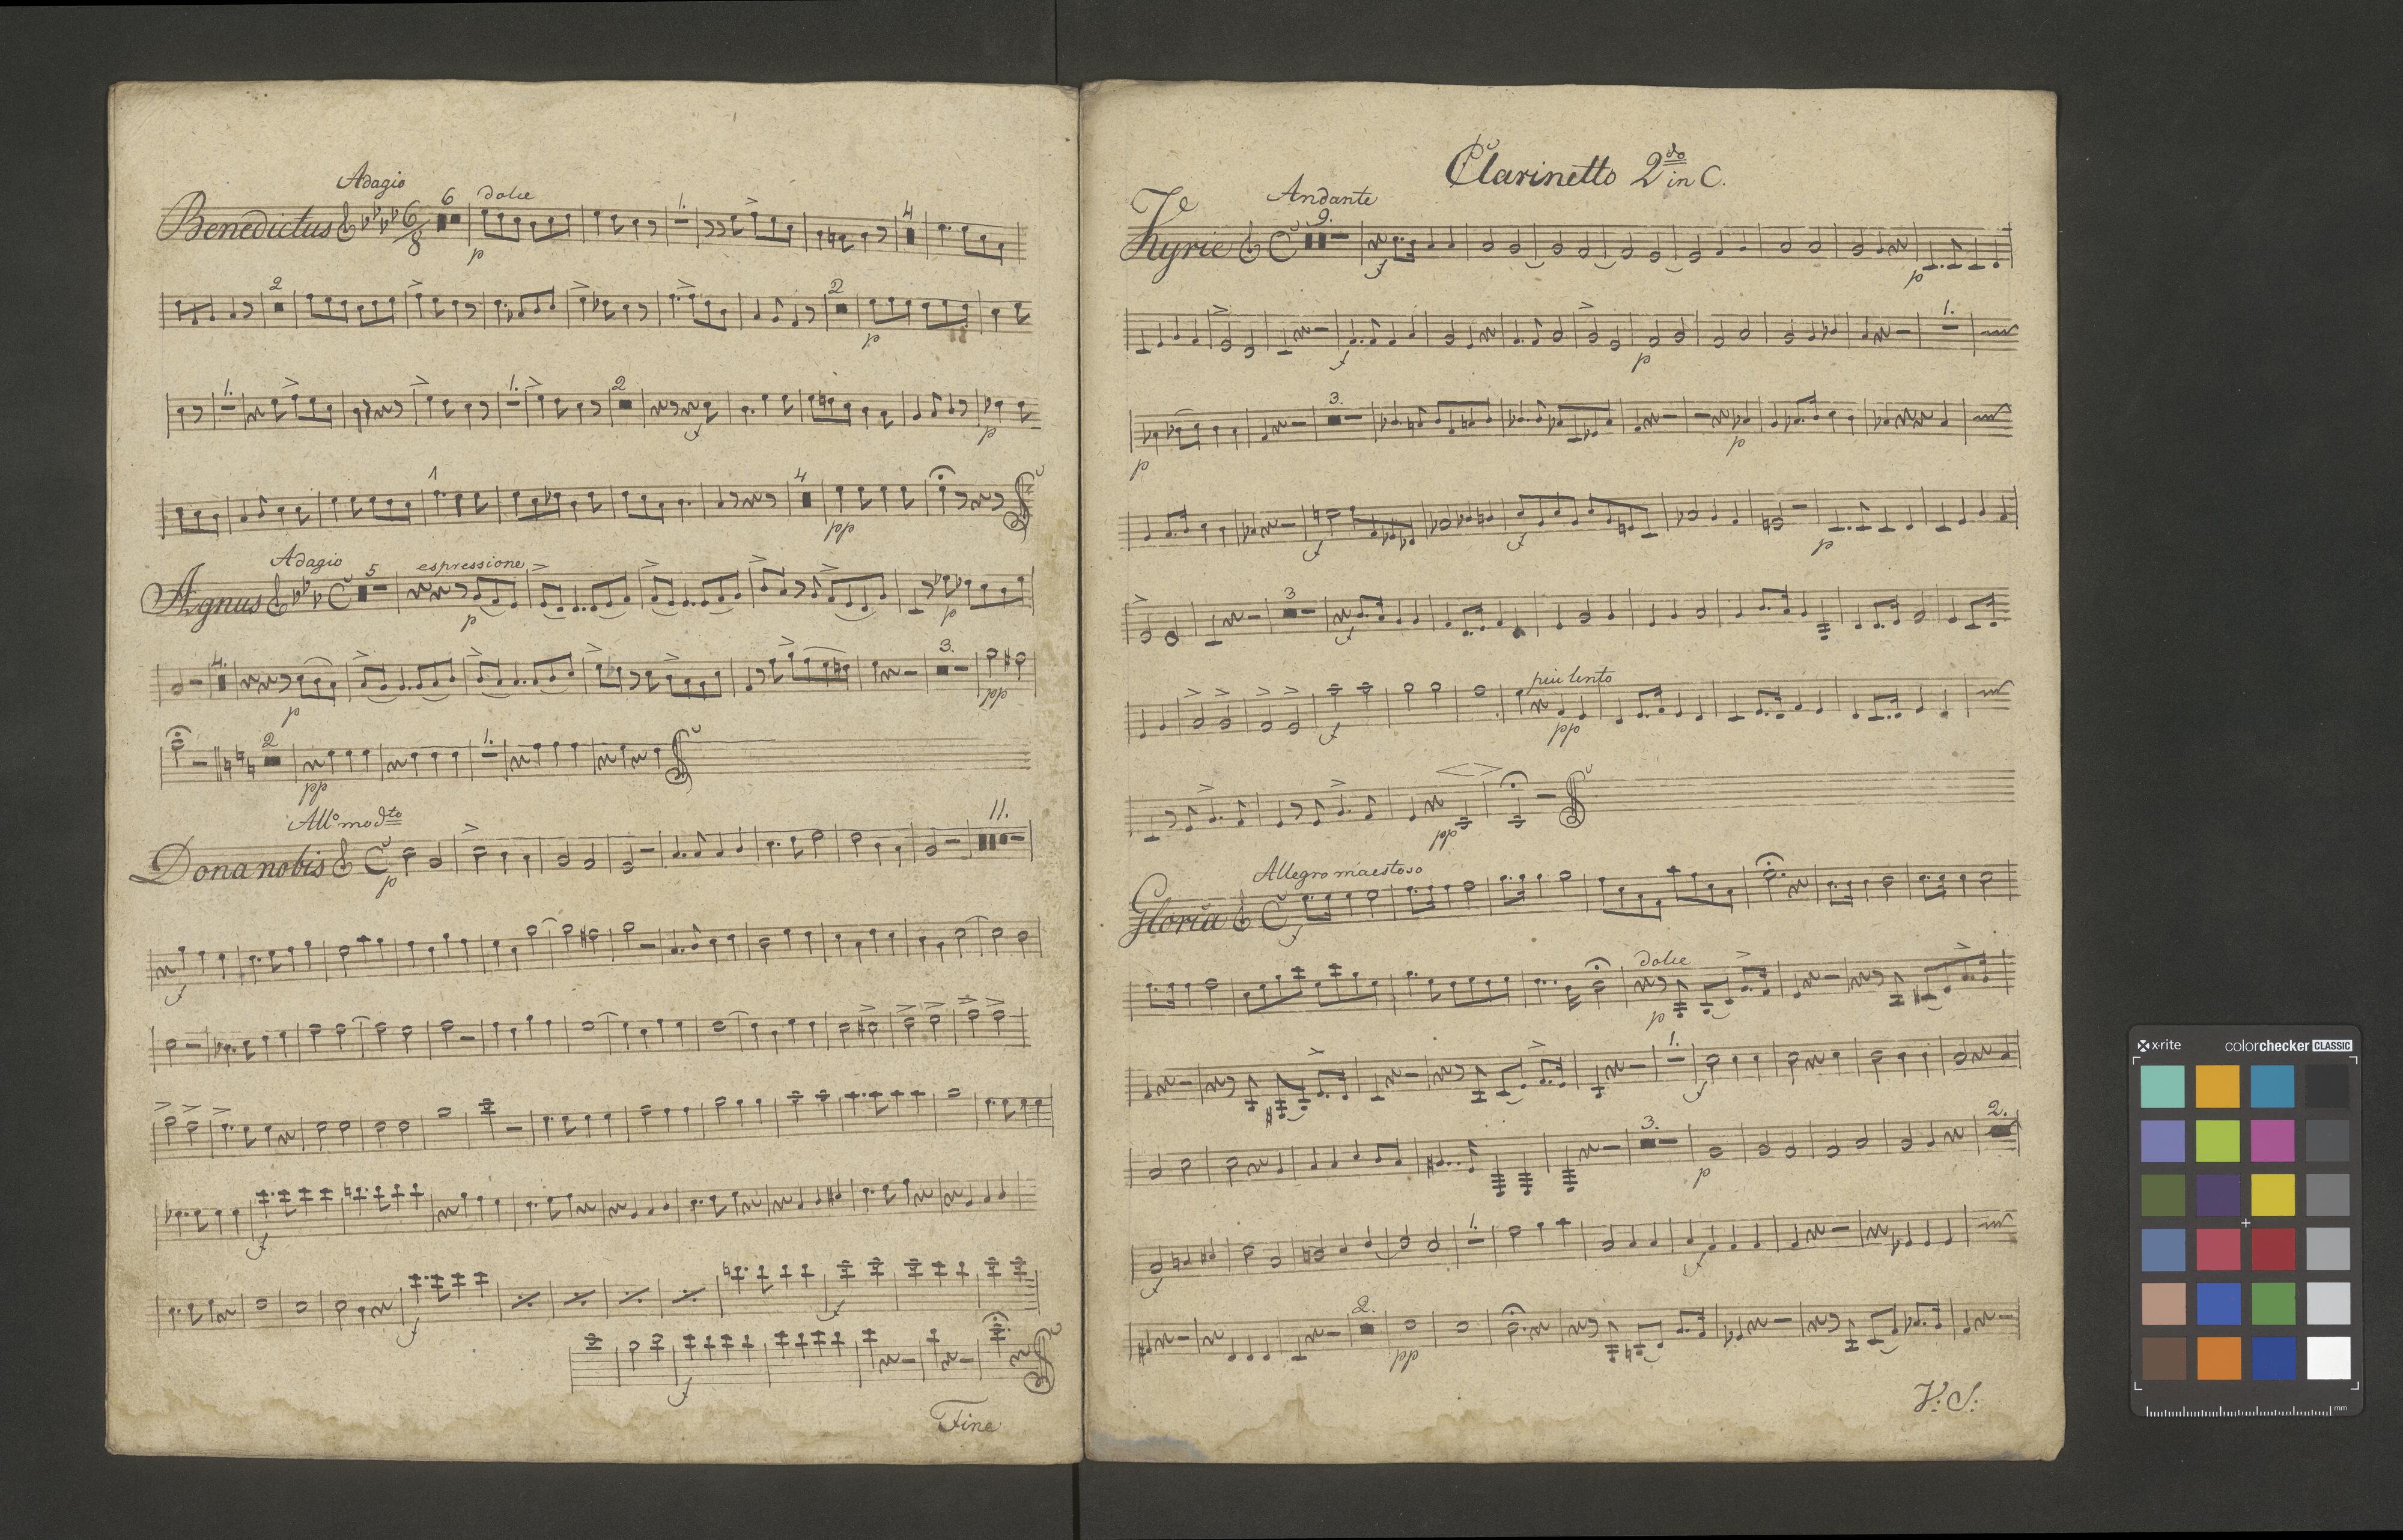 Adagio
6 dolce
Benedictus 6/8
p 1. 4
2 2
p
1. 1. 2
f p
1 4
pp
Adagio
5 espressione
Agnus C
p p
4. 3.
p pp
2 1.
pp
Allo modto
11.
Dona nobis C
p
f
f
f f
f
Fine
Clarinetto 2do in C.
Andante
9.
Kyrie C
f p
1.
f p
3.
p p
f f p
3
f
piu lento
f pp
pp
Allegro maestoso
Gloria C
f
dolce
p
1.
f
3. 2.
p
1.
f f
2.
pp
V: S:
x-rite colorchecker CLASSIC
mm